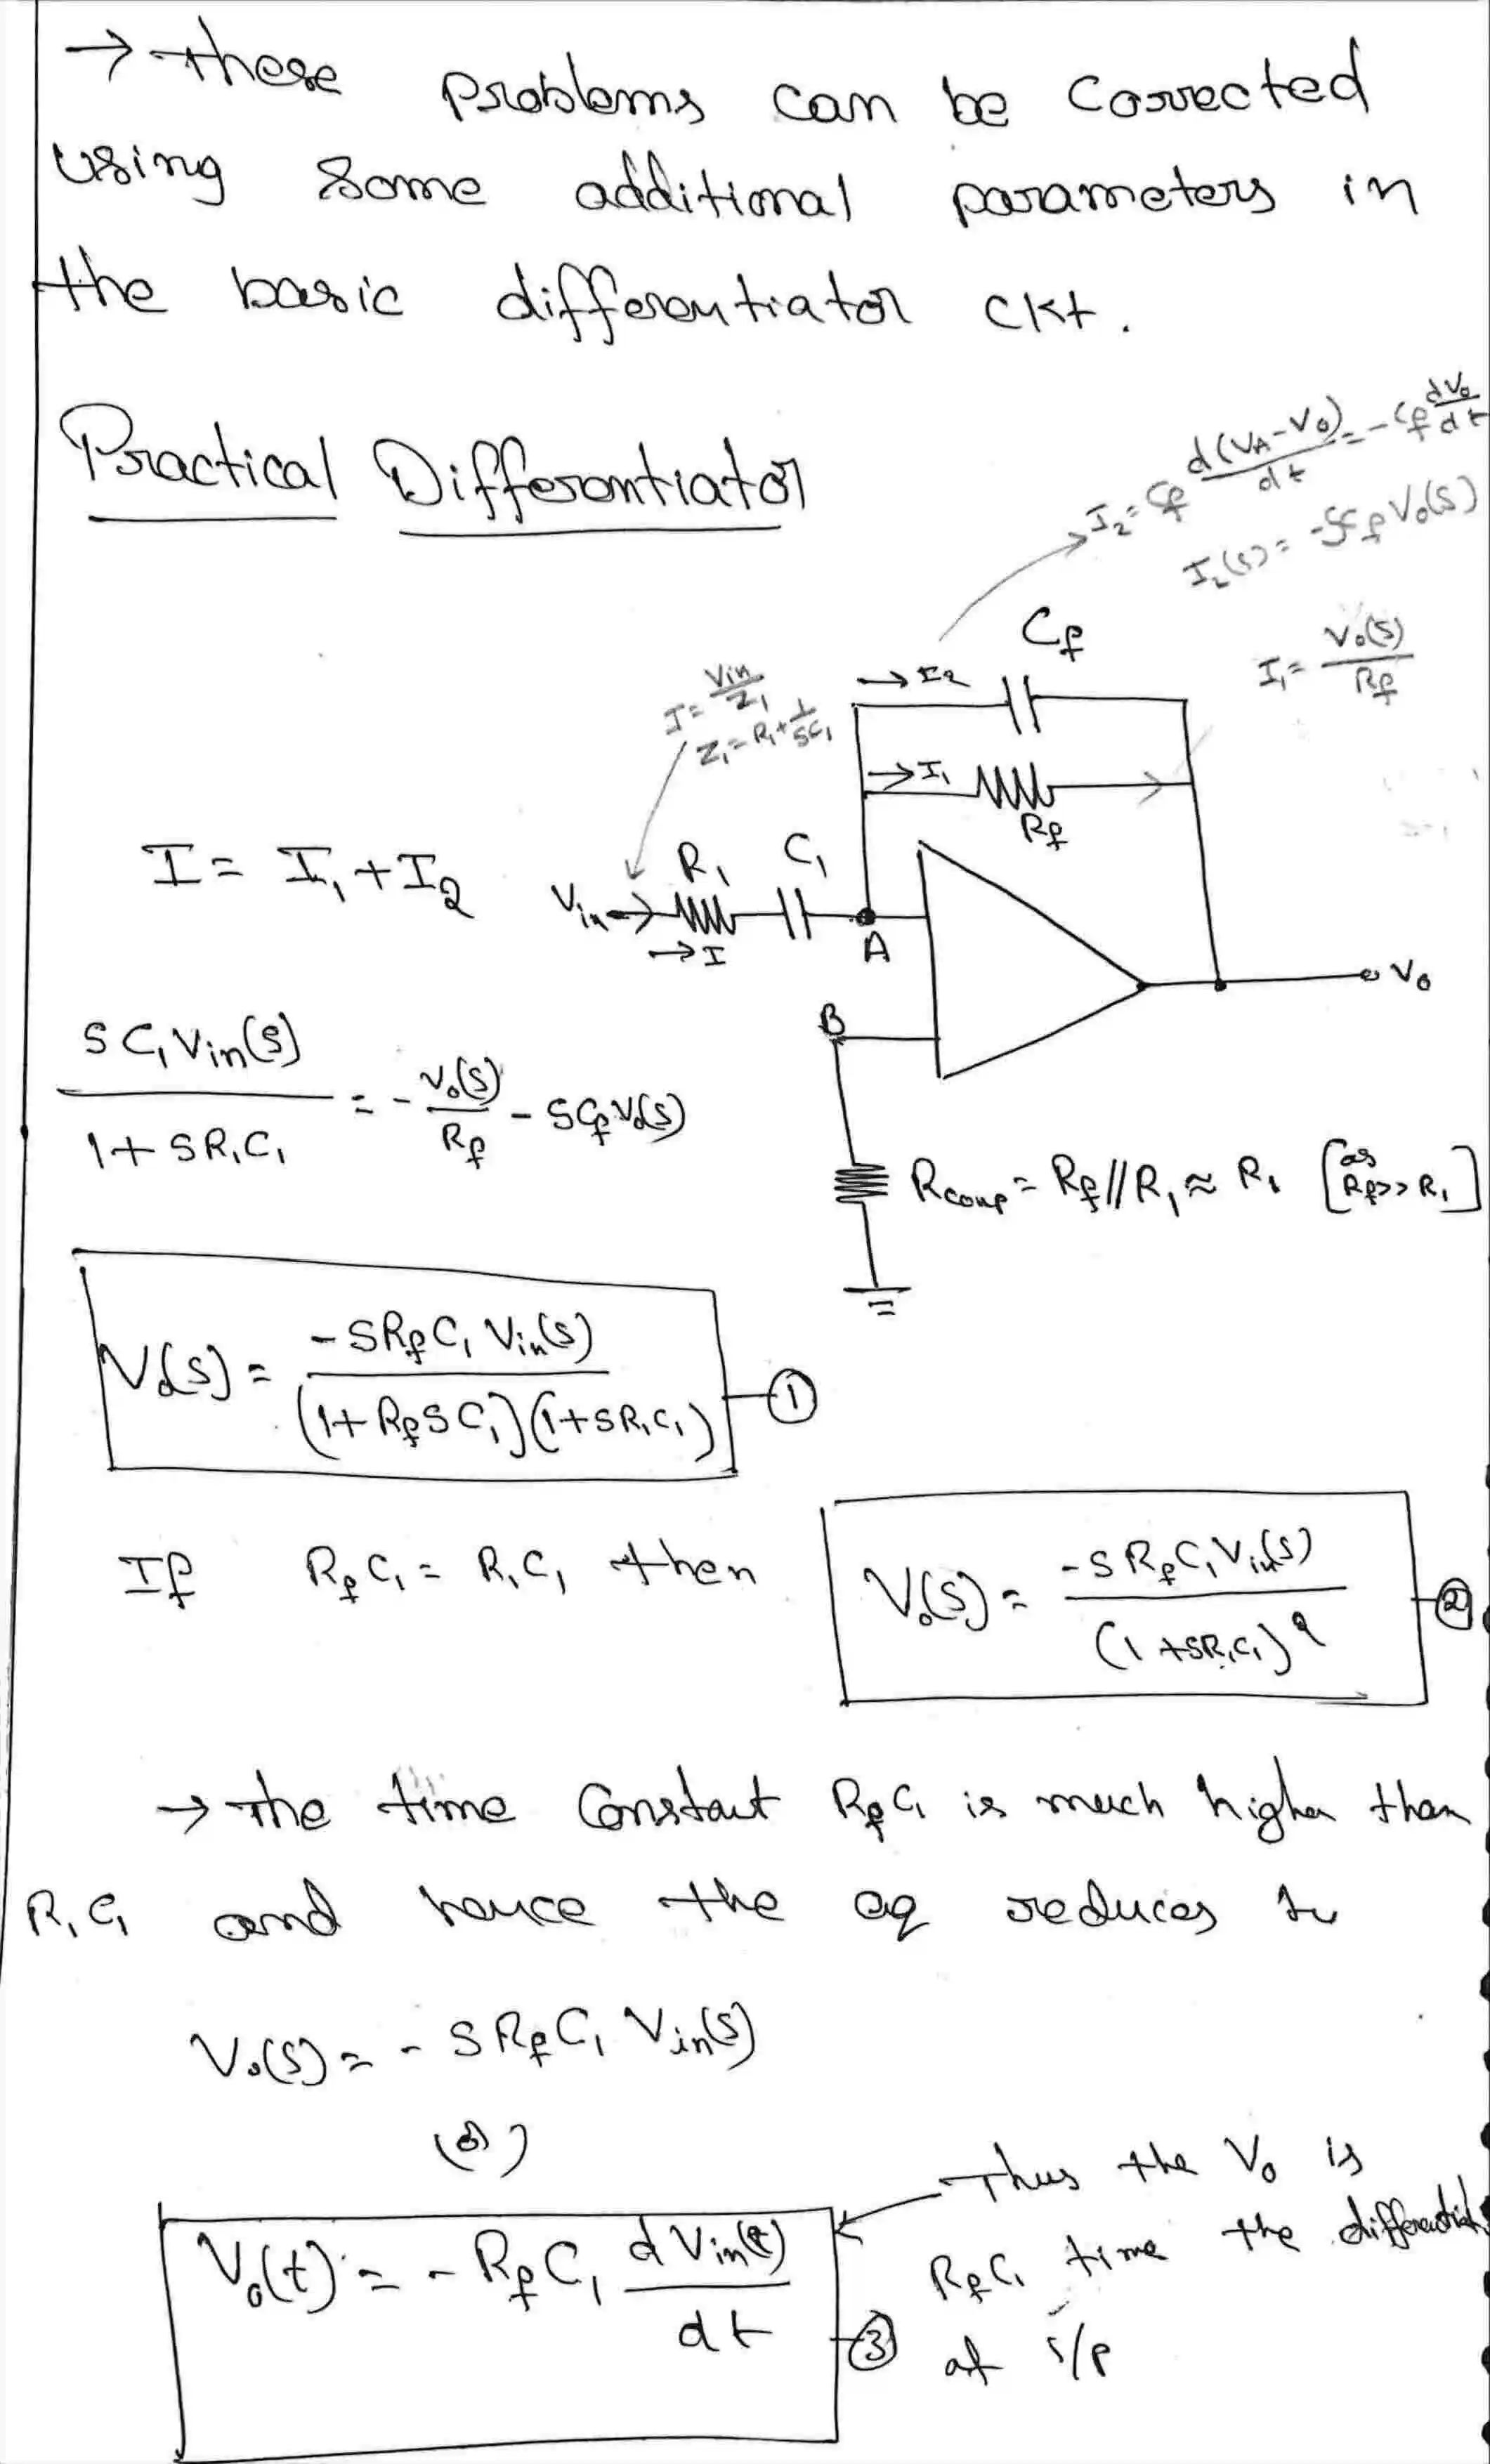 → these problems can be corrected
using some additional parameters in
the basic differentiator ckt.
Practical Differentiator
I₂ = Cf d(VA-Vo)/dt = -Cf dVo/dt
I₂(s) = -SCf Vo(s)
I₁ = Vo(s)/Rf
I = Vin/Z₁
Z₁ = R₁ + 1/SC₁
→ I₂
Cf
→ I₁
Rf
I = I₁ + I₂
Vin
R₁
C₁
→ I
A
B
Vo
SC₁Vin(s)/1+SR₁C₁ = -Vo(s)/Rf - SCfVo(s)
Rcomp = Rf//R₁ ≈ R₁ [as Rf>>R₁]
Vo(s) = -SRfC₁ Vin(s)/(1+RfSC₁)(1+SR₁C₁) ①
If RfC₁ = R₁C₁ then
Vo(s) = -SRfC₁Vin(s)/(1+SR₁C₁)² ②
→ The time Constant RfC₁ is much higher than
R₁C₁ and hence the eq reduces to
Vo(s) = -SRfC₁ Vin(s)
(or)
Vo(t) = -RfC₁ dVin(t)/dt ③
Thus the Vo is
RfC₁ time the
of i/p